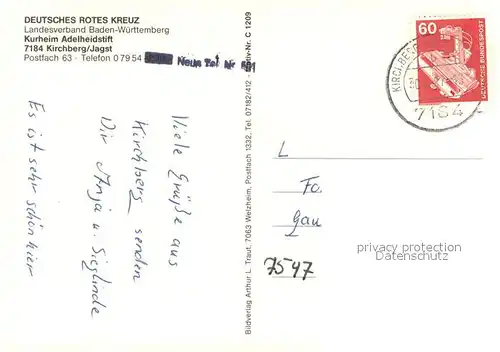 DEUTSCHES ROTES KREUZ
Landesverband Baden-Württemberg
Kurheim Adelheidstift
7184 Kirchberg/Jagst
Postfach 63 · Telefon 0 79 54
Neue Tel Nr 801
Viele Grüße aus
Kirchberg senden
Dir Anja u. Sieglinde
Es ist sehr schön hier
Bildverlag Arthur L. Traut, 7063 Welzheim, Postfach 1332, Tel. 07182/412 - Motiv-Nr. C 1209
60
DEUTSCHE BUNDESPOST
7184
L
Fa.
Gau
privacy protection
Datenschutz
7547